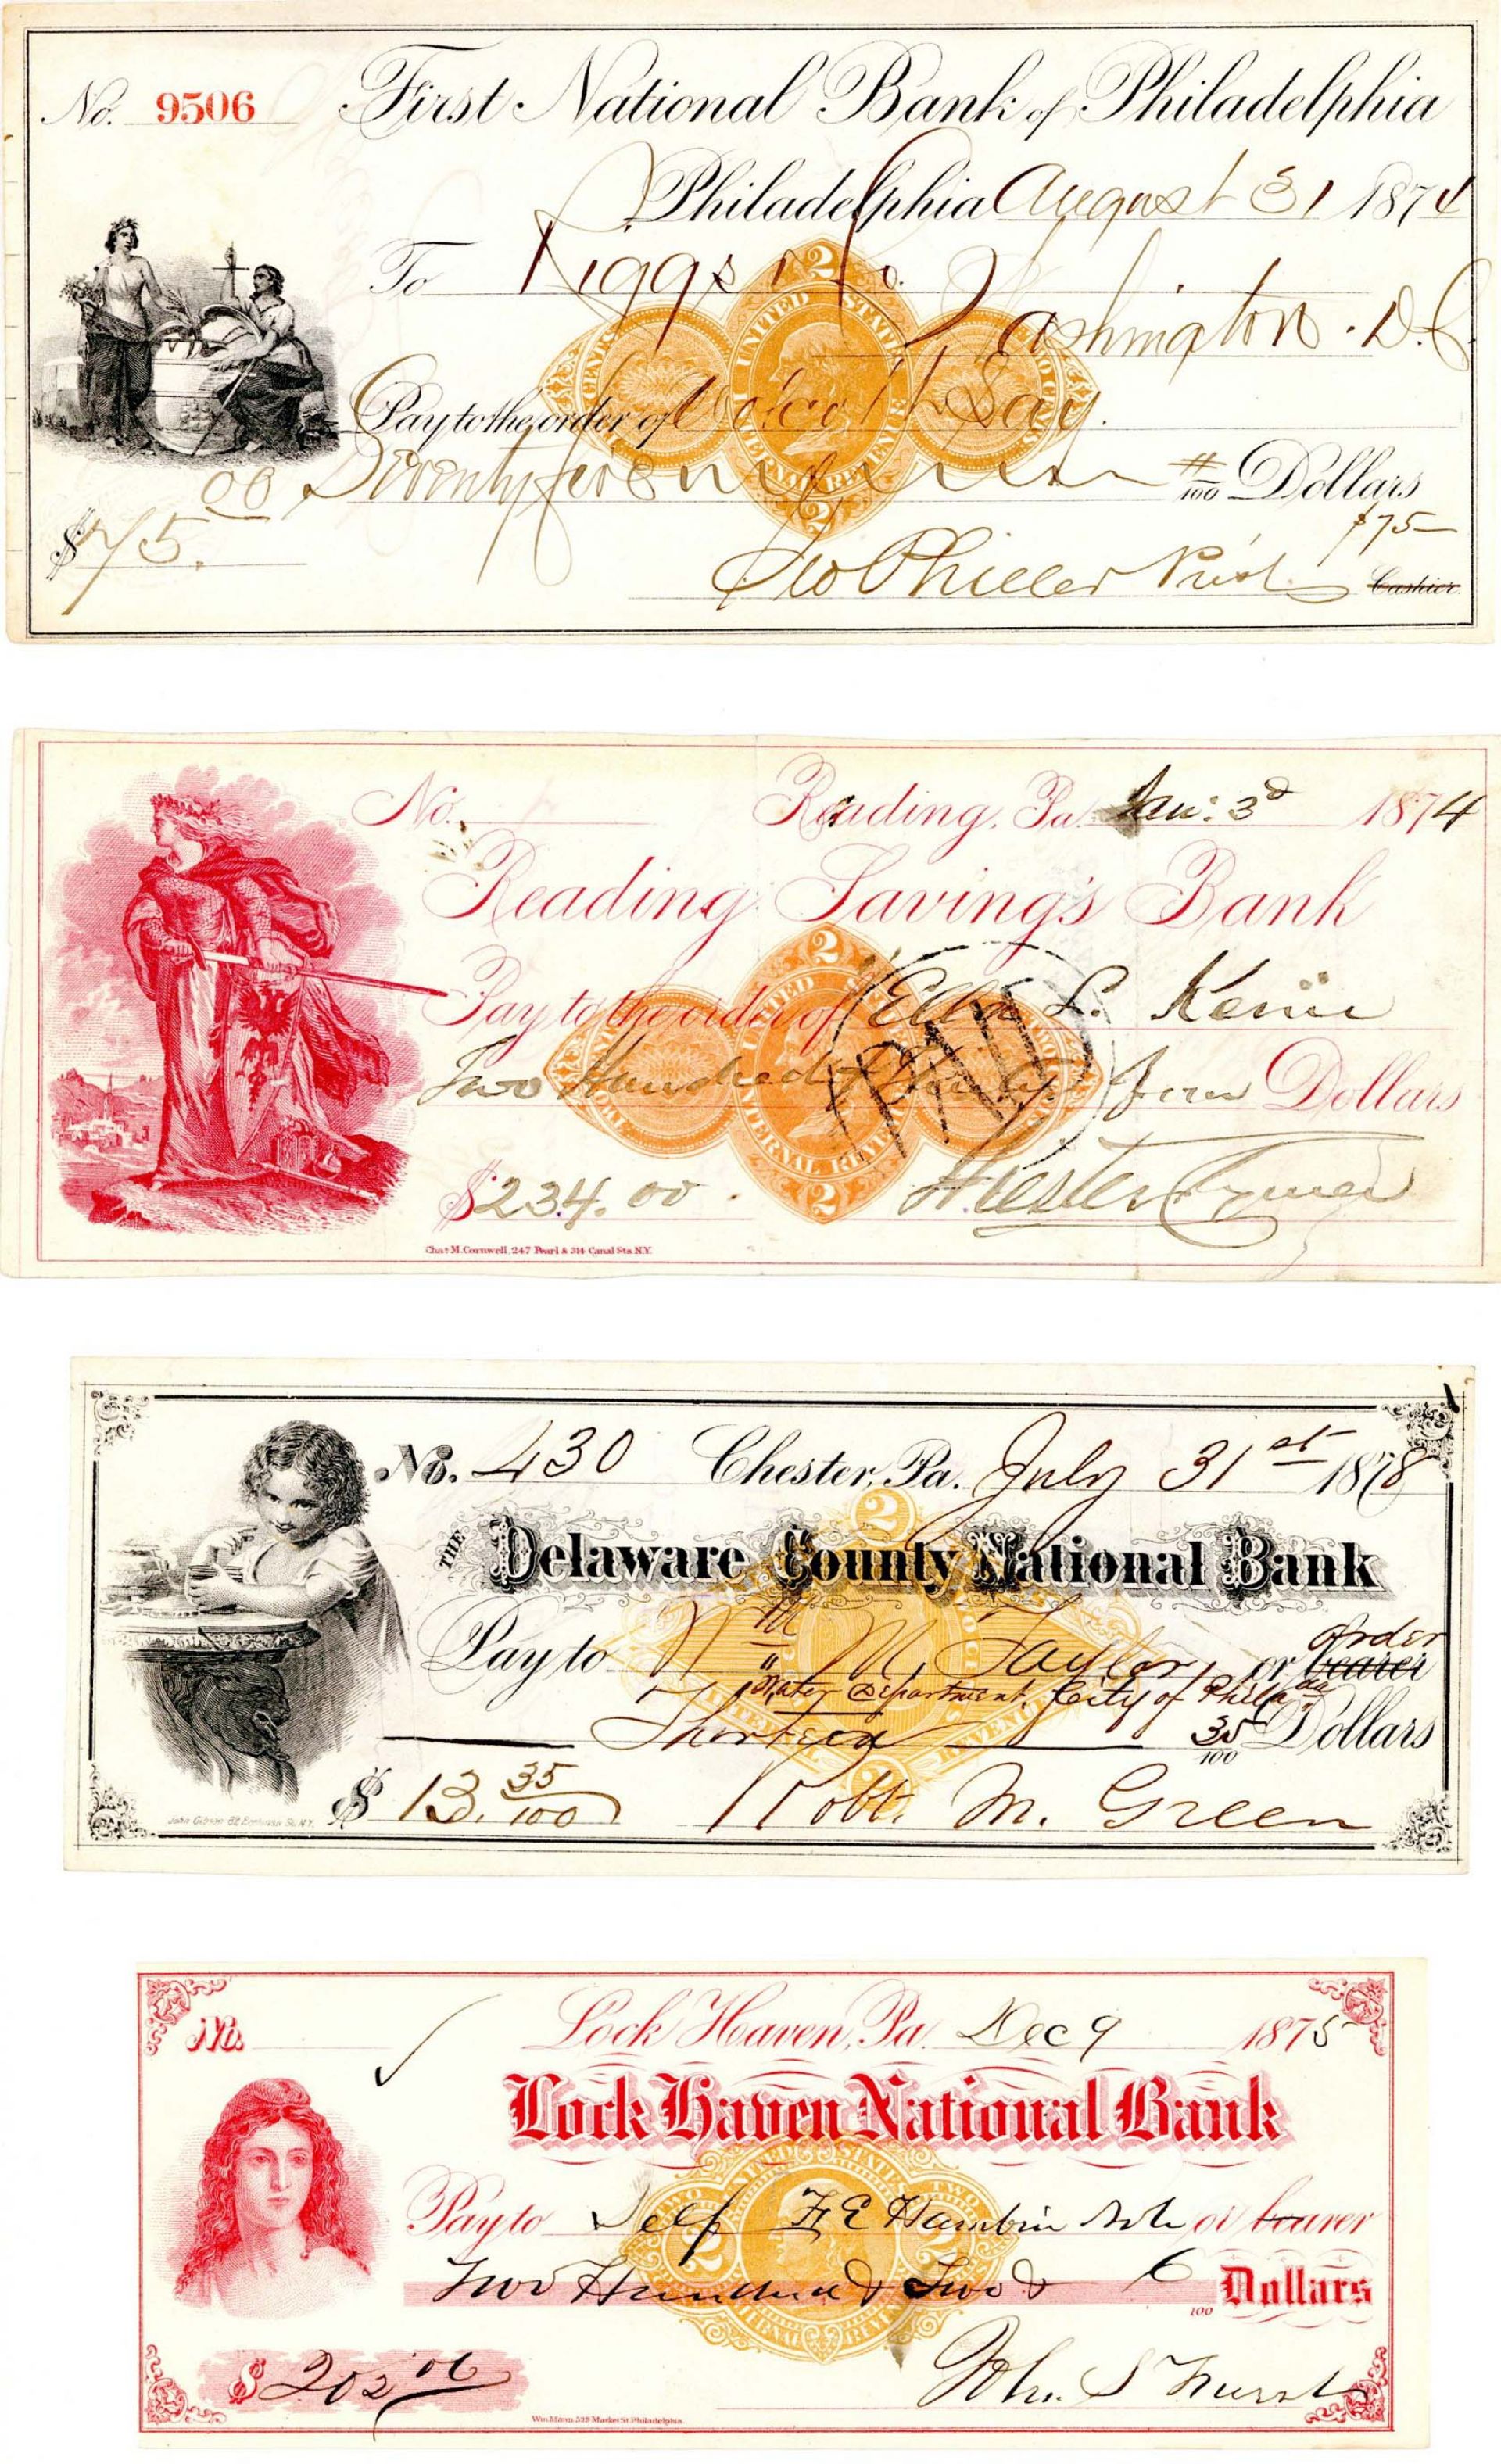 No. 9506 First National Bank of Philadelphia
Philadelphia August 31 1874
To Riggs & Co.
Washington. D.C.
Pay to the order of Day.
Seventy five # 100 Dollars
$75.00 $75
Geo Philler Prest. Cashier
2 UNITED STATES INTERNAL REVENUE 2
No. Reading, Pa. Jan: 3d 1874
Reading Savings Bank
Pay to the order of Ella L.
PAID
Two Hundred & Thirty four Dollars
$234.00. Hiester
2 UNITED STATES INTERNAL REVENUE 2
Chas M. Cornwell, 247 Pearl & 314 Canal Sts. N.Y.
No. 430 Chester, Pa. July 31st 1878
THE Delaware County National Bank
Pay to Wm M. Taylor, or bearer order
Water Department, City of Philada
Thirteen 35 100 Dollars
$13.35 100 Robt. M. Green
2 INTERNAL REVENUE 2
No. Lock Haven, Pa. Dec 9 1875
Lock Haven National Bank
Pay to Self or bearer
Two Hundred & Two & 6 100 Dollars
$202 06
UNITED STATES TWO 2 2 INTERNAL REVENUE
Wm. Mann 529 Market St. Philadelphia.